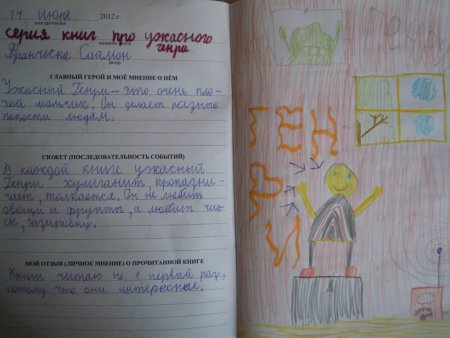 14 июля 2012 г.
дата прочтения
серия книг про ужасного
Генри
Франческа Саймон
автор
ГЛАВНЫЙ ГЕРОЙ И МОЁ МНЕНИЕ О НЁМ
Ужасный Генри – это очень пло-
хой мальчик. Он делает разные
пакости людям.
СЮЖЕТ (ПОСЛЕДОВАТЕЛЬНОСТЬ СОБЫТИЙ)
В каждой книге ужасный
Генри хулиганит, проказни-
чает, толкается. Он не любит
овощи и фрукты, а любит чип-
сы, газировку.
МОЙ ОТЗЫВ (ЛИЧНОЕ МНЕНИЕ) О ПРОЧИТАННОЙ КНИГЕ
Книги читаю не в первый раз,
потому что они интересные.
ГЕН
РИ